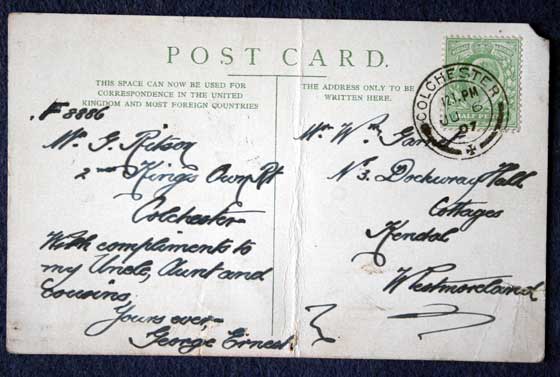 POST CARD.
THIS SPACE CAN NOW BE USED FOR
CORRESPONDENCE IN THE UNITED
KINGDOM AND MOST FOREIGN COUNTRIES
THE ADDRESS ONLY TO BE
WRITTEN HERE.
8886
Mr. G. Ritson
2nd King's Own Rt
Colchester
With compliments to
my Uncle, Aunt and
Cousins,
Yours ever,
George Ernest
Mr. Wm.
N. 3. Dockwray Hall
Cottages
Kendal
Westmoreland
COLCHESTER
PM
JU 6
07
HALF PENNY